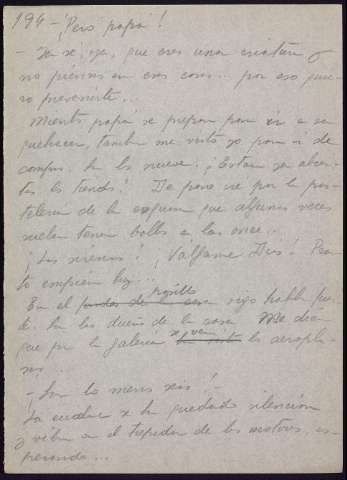 194 - ¡Pero papá!
- Ya sé, ya, que eres una criatura y
no piensas en esas cosas... por eso quie-
ro prevenirte...
Mientras papá se prepara para ir a su
quehacer, también me visto yo para ir de
compras. Son las nueve. ¡Estarán ya abier-
tas las tiendas! De paso iré por la pas-
telería de la esquina que algunas veces
suelen tener bollos a las once...
¡Las sirenas! ¡Válgame Dios! Pron-
to empiezan hoy...
En el pasillo oigo hablar fuer-
te. Son los dueños de la casa. Me dicen
que por la galería se ven los aeropla-
nos...
- ¡Son lo menos seis!
La calle se ha quedado silenciosa
y vibra en el trepidar de los motores, es-
perando...